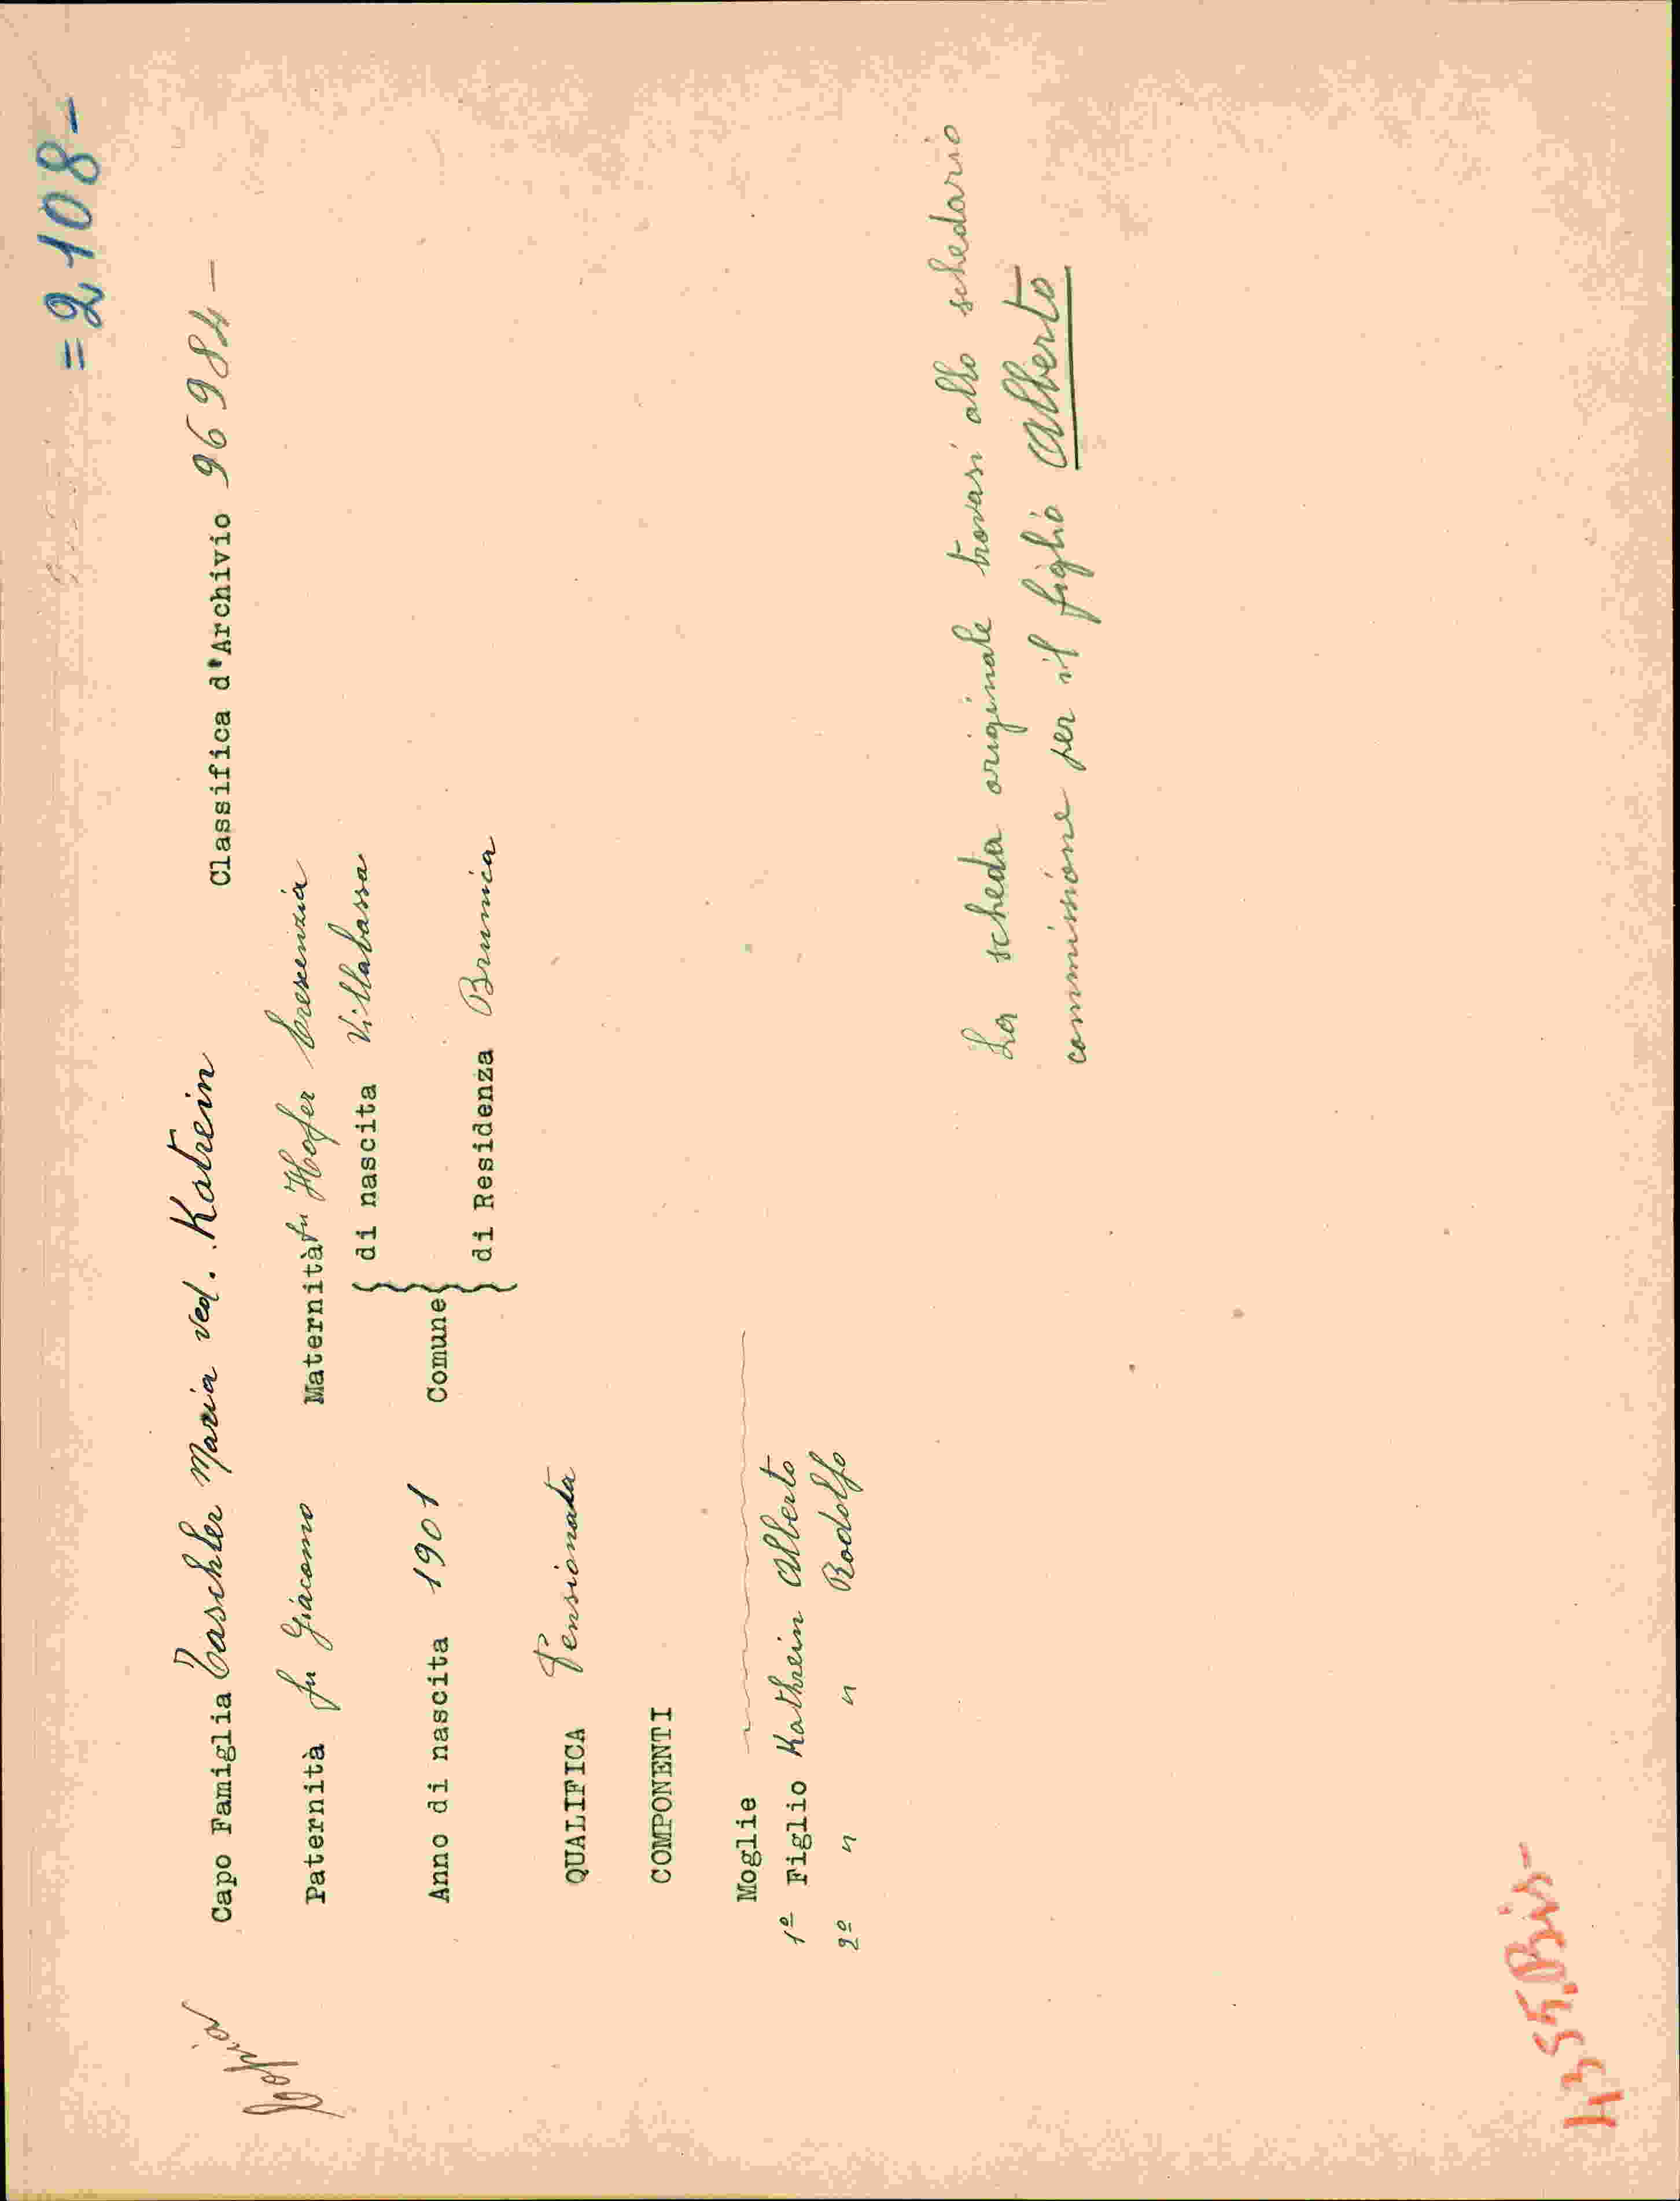 = 2108 -
Copia
Capo Famiglia Taschler Maria ved. Katrein Classifica d'Archivio 96984 -
Paternità fu Giacomo Maternità fu Hofer Crescenzia
Anno di nascita 1901 Comune { di nascita Villabassa
} di Residenza Brunico
QUALIFICA Pensionata
COMPONENTI
Moglie
1º Figlio Kathrein Alberto
2º " " Rodolfo
La scheda originale trovasi allo schedario
commissione per il figlio Alberto